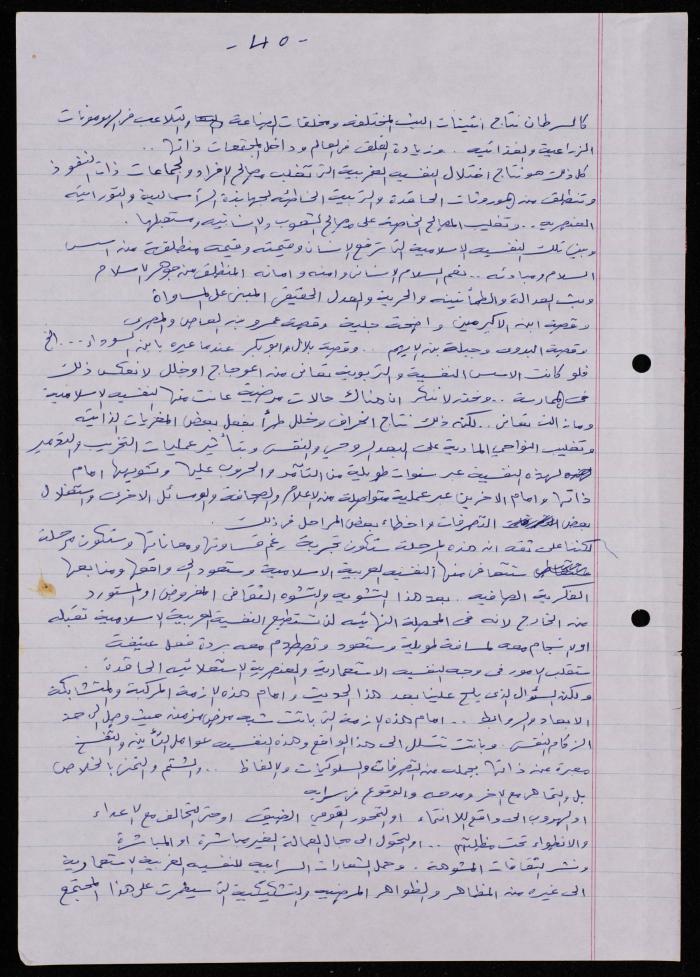 - ٤٥ -
كالسرطان نتاج انبثاثات البيئة المختلفة ومخلفات الصناعة والتلاعب في الهرمونات
الزراعية والغذائية .. وزيادة القلق في العالم وداخل المجتمعات ذاتها ..
كل ذلك هو نتاج اختلال النفسية الغربية التي تغلب مصالح الافراد والجماعات ذات النفوذ
وتنطلق من الموروثات الحاقدة والتربية الخاطئة لجهابذة الرأسمالية والتوراتية
العنصرية .. وتغليب المصالح الخاصة على مصالح الشعوب والانسانية ومستقبلها .
وبين تلك النفسية الاسلامية التي ترفع الانسان وقيمته وقيمه منطلقة من اسس
السلام ومبادئه .. نعم السلام الانساني وامنه وامانه المنطلق من جوهر الاسلام
وبث العدالة والطمأنينة والحرية والعدل الحقيقي المبني على المساواة
وقصة ابن الاكرمين واضحة جلية وقصة عمرو بن العاص والمصري
وقصة البدوي وجبلة بن الايهم .. وقصة بلال وابو بكر عندما عيره يا ابن السوداء ... الخ
فلو كانت الاسس النفسية والتربوية تعاني من اعوجاج او خلل لانعكس ذلك
في الممارسة .. ونحن لا ننكر ان هناك حالات مرضية عانت منها النفسية الاسلامية
وما زالت تعاني .. لكنه ذلك نتاج انحراف وخلل طرأ بفعل بعض المغريات الذاتية
وتغليب النواحي المادية على البعد الروحي والنفسي وبتأثير عمليات التخريب والتدمير
لهذه النفسية عبر سنوات طويلة من التآمر والحروب عليها وتشويهها امام
ذاتها وامام الاخرين عبر عملية متواصلة من الاعلام والصحافة والوسائل الاخرى واستغلال
بعض التصرفات واخطاء بعض المراحل في ذلك .
لكننا على ثقة ان هذه المرحلة ستكون تجربة رغم قساوتها ومعاناتها وستكون مرحلة
ستتعافى منها النفسية العربية الاسلامية وستعود الى واقعها ومنابعها
الفكرية الصافية . بعد هذا التشويه والتشوه الثقافي المفروض او المستورد
من الخارج لانه في المحصلة النهائية لن تستطيع النفسية العربية الاسلامية تقبله
او الانسجام معه لمسافة طويلة وستعود وتصطدم معه بردة فعل عنيفة
ستقلب الامور في وجه النفسية الاستعمارية والعنصرية الاستعلائية الحاقدة .
ولكن السؤال الذي يلح علينا بعد هذا الحديث وامام هذه الازمة المركبة والمتشابكة
الابعاد والروابط .. امام هذه الازمة التي باتت شبه مرض مزمن حيث وصل الى حد
الزكام النفسي . وباتت تتسلل الى هذا الواقع وهذه النفسية عوامل التأنيب والتفسخ
معبرة عن ذاتها بجملة من التصرفات والسلوكيات والالفاظ .. والشتم والتمني بالخلاص
بل والتماهي مع الاخر ومدحه والوقوع في سرابه
او الهروب الى واقع اللاانتماء او التحور القومي الضيق او حتى التحالف مع الاعداء
والانطواء تحت مظلتهم .. او التحول الى مجال العمالة الغير مباشرة او المباشرة
ونشر الثقافات المشوهة . وحمل الشعارات السرابية للنفسية الغربية الاستعمارية
الى غيره من المظاهر والظواهر المرضية والتشكيكية التي سيطرت على هذا المجتمع